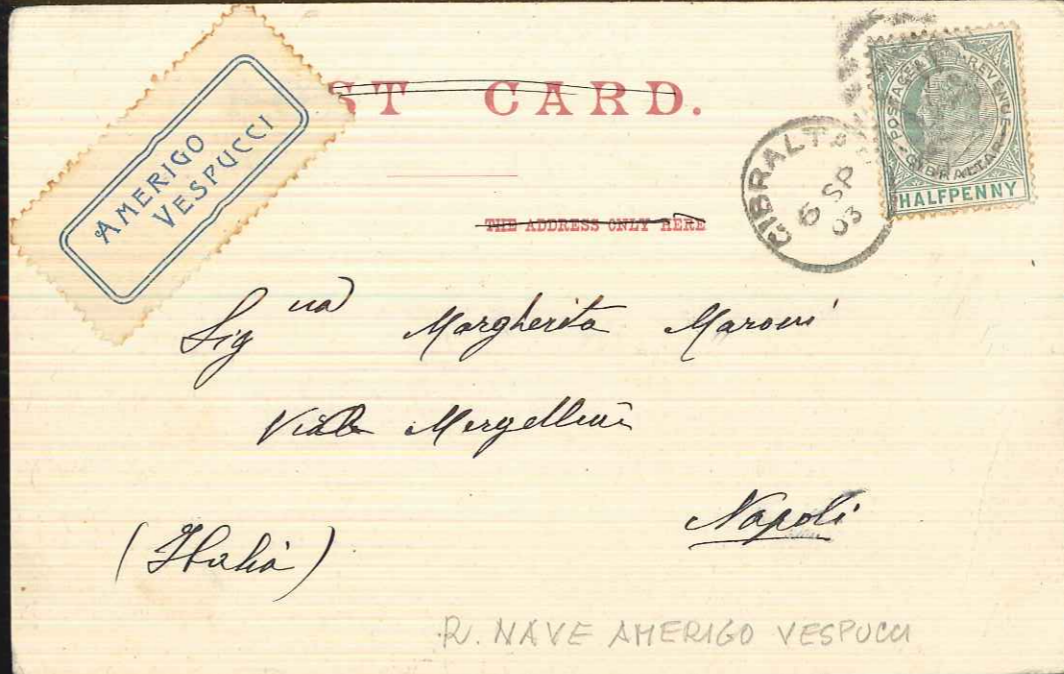 AMERIGO
VESPUCCI
ST CARD.
THE ADDRESS ONLY HERE
POSTAGE & REVENUE
GIBRALTAR
HALFPENNY
GIBRALTAR
6 SP
03
Sig na Margherita Maroni
Viale Mergellina
Napoli
(Italia)
R. NAVE AMERIGO VESPUCCI